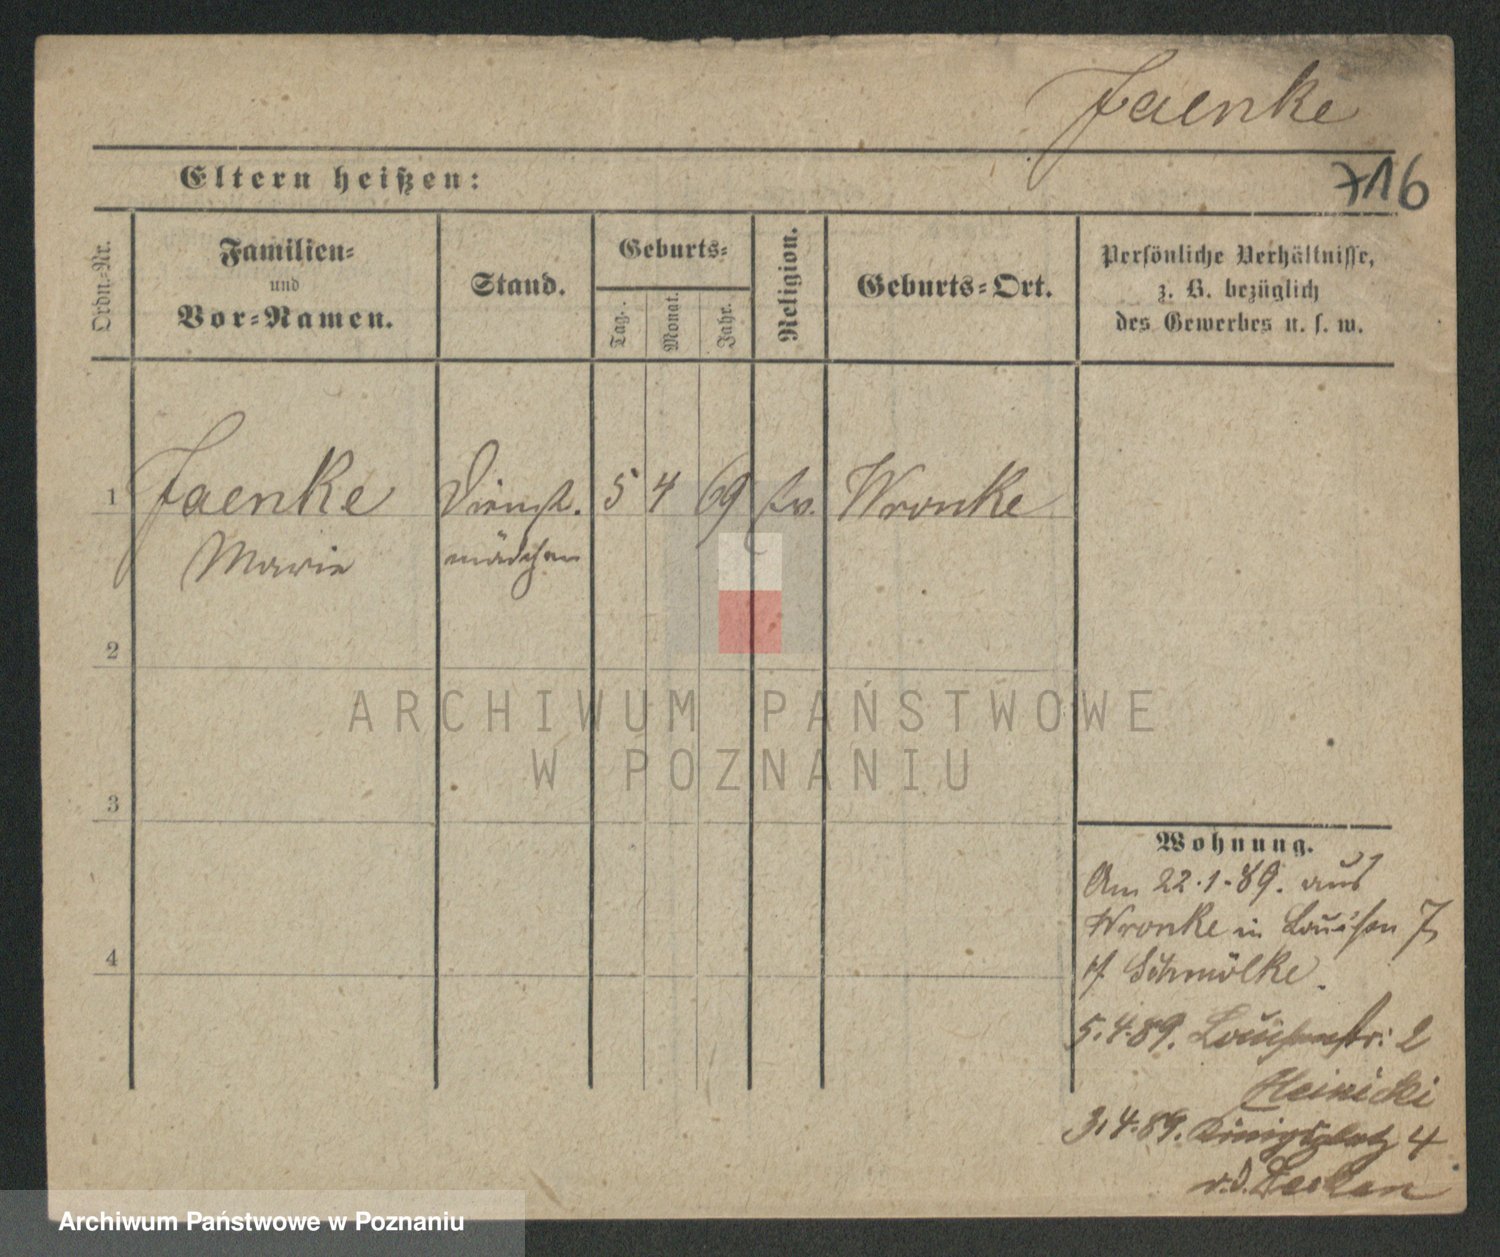 Jaenke
Eltern heißen:
716
Ordn.-Nr.
Familien-
und
Vor-Namen.
Stand.
Geburts-
Tag.
Monat.
Jahr.
Religion.
Geburts-Ort.
Persönliche Verhältnisse,
z. B. bezüglich
des Gewerbes u. s. w.
1 Jaenke Dienst. 5 4 69 ev. Wronke
Marie mädchen
2
3
4
Wohnung.
Am 22.1.89. aus
Wronke in Louisen 7
Schmölke.
5.4.89. Louisenstr: 2
Heinicki
3.4.89. Königsplatz 4
v.d.
ARCHIWUM PAŃSTWOWE
W POZNANIU
Archiwum Państwowe w Poznaniu